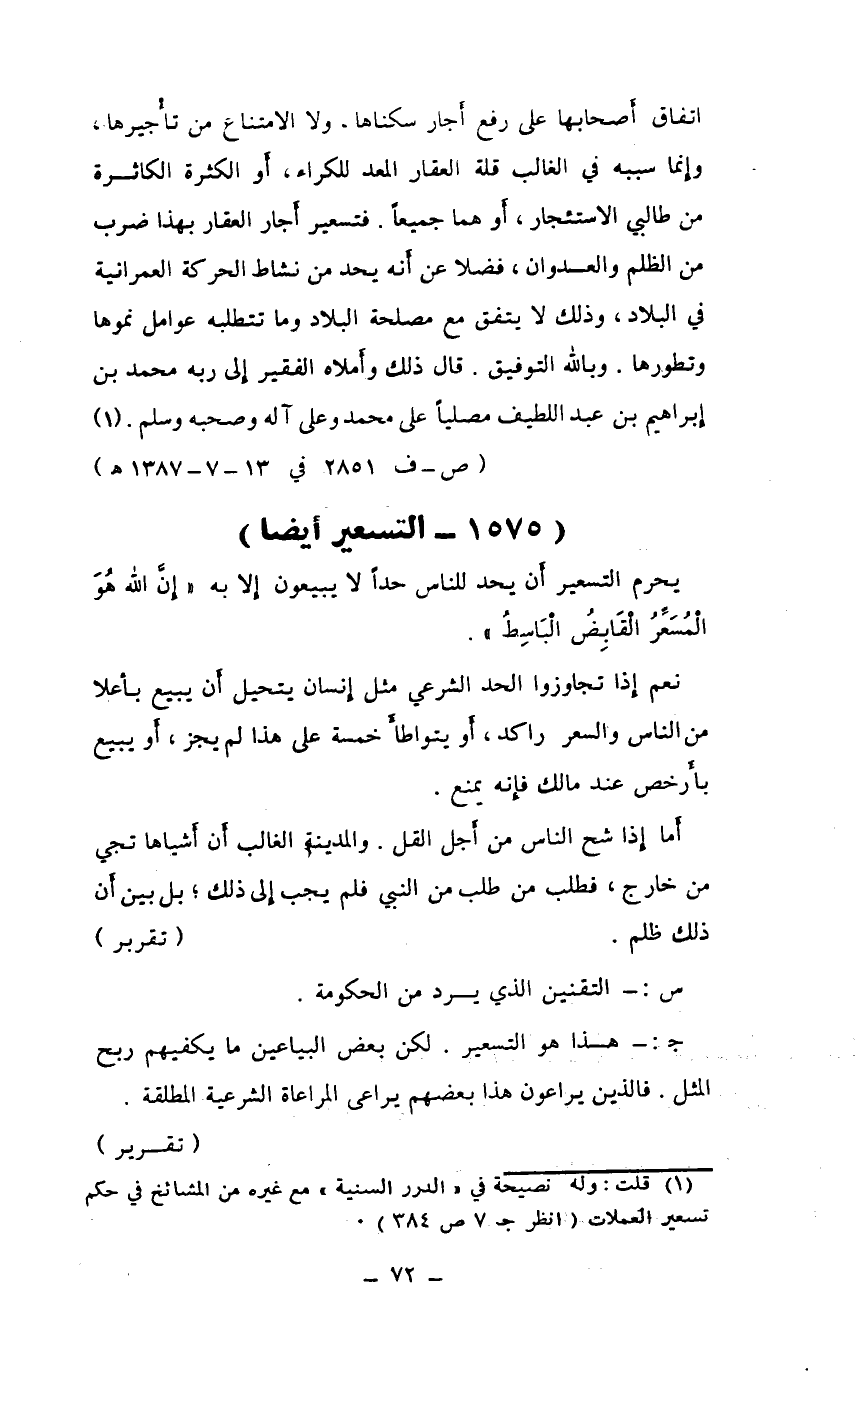 اتفاق أصحابها على رفع أجار سكناها . ولا الامتناع من تأجيرها ،
وإنما سببه في الغالب قلة العقار المعد للكراء ، أو الكثرة الكاثـرة
من طالبي الاستئجار ، أو هما جميعاً . فتسعير أجار العقار بهذا ضرب
من الظلم والعـدوان ، فضلا عن أنه يحد من نشاط الحركة العمرانية
في البلاد ، وذلك لا يتفق مع مصلحة البلاد وما تتطلبه عوامل نموها
وتطورها . وبالله التوفيق . قال ذلك وأملاه الفقير إلى ربه محمد بن
إبراهيم بن عبد اللطيف مصلياً على محمد وعلى آله وصحبه وسلم . (١)
( ص ـ ف ٢٨٥١ في ١٣ ـ ٧ ـ ١٣٨٧ ه )
( ١٥٧٥ ـ التسعير أيضا )
يحرم التسعير أن يحد للناس حداً لا يبيعون إلا به « إنَّ الله هُوَ
الْمُسَعِّرُ الْقَابِضُ الْبَاسِطُ » .
نعم إذا تجاوزوا الحد الشرعي مثل إنسان يتحيل أن يبيع بأعلا
من الناس والسعر راكد ، أو يتواطأ خمسة على هذا لم يجز ، أو يبيع
بأرخص عند مالك فإنه يمنع .
أما إذا شح الناس من أجل القل . والمدينة الغالب أن أشياها تجي
من خارج ، فطلب من طلب من النبي فلم يجب إلى ذلك ؛ بل بين أن
ذلك ظلم .
( تقرير )
س : ـ التقنين الذي يـرد من الحكومة .
جـ : ـ هـذا هو التسعير . لكن بعض البياعين ما يكفيهم ربح
المثل . فالذين يراعون هذا بعضهم يراعى المراعاة الشرعية المطلقة .
( تقـرير )
(١) قلت : وله نصيحة في « الدرر السنية » مع غيره من المشائخ في حكم
تسعير العملات ( انظر جـ ٧ ص ٣٨٤ ) .
ـ ٧٢ ـ